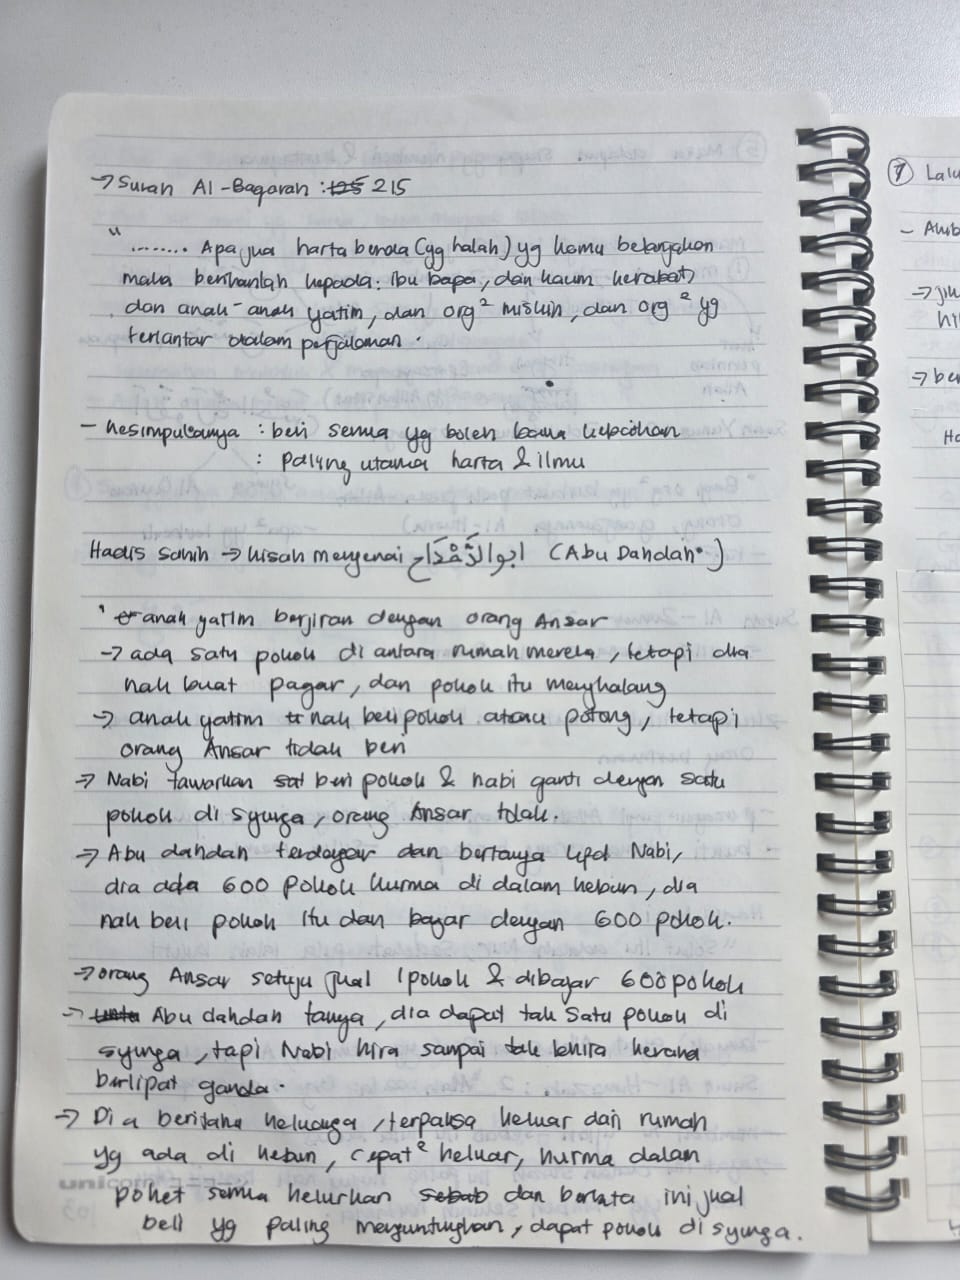 → Surah Al-Baqarah : 215
" ........ Apa jua harta benda (yg halal) yg kamu belanjakan
maka berikanlah kepada: Ibu bapa, dan kaum kerabat,
dan anak-anak yatim, dan org² miskin, dan org² yg
terlantar dalam perjalanan.
- kesimpulannya : beri semua yg boleh bawa kebaikan
: Paling utama harta & ilmu
Hadis sahih → kisah mengenai ابو الدَّحْدَاح (Abu Dahdah)
anak yatim berjiran dengan orang Ansar
→ ada satu pokok di antara rumah mereka, tetapi dia
nak buat pagar, dan pokok itu menghalang
→ anak yatim nak beli pokok atau potong, tetapi
orang Ansar tidak beri
→ Nabi tawarkan beri pokok & nabi ganti dengan satu
pokok di syurga, orang Ansar tolak.
→ Abu dahdah terdengar dan bertanya kpd Nabi,
dia ada 600 pokok kurma di dalam kebun, dia
nak beli pokok itu dan bayar dengan 600 pokok.
→ orang Ansar setuju jual 1 pokok & dibayar 600 pokok
→ Abu dahdah tanya, dia dapat tak satu pokok di
syurga, tapi Nabi kira sampai tak terkira kerana
berlipat ganda.
→ Dia beritahu keluarga, terpaksa keluar dari rumah
yg ada di kebun, cepat² keluar, kurma dalam
poket semua kelurkan dan berkata ini jual
beli yg paling menguntungkan, dapat pokok di syurga.
unicorn
7 Lalu
-
→
→ ber